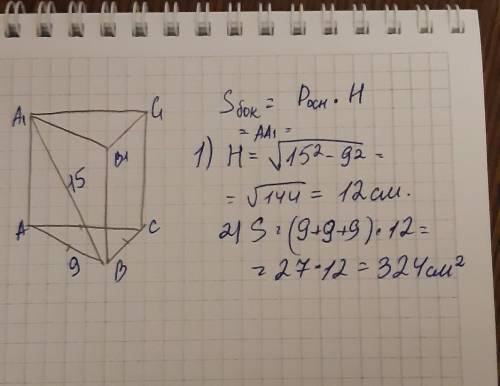 A₁ C₁
B₁
15
A C
9 B
Sбок = Pосн · H
= AA₁ =
1) H = √15² - 9² =
= √144 = 12 см.
2) S = (9+9+9) · 12 =
= 27 · 12 = 324 см²